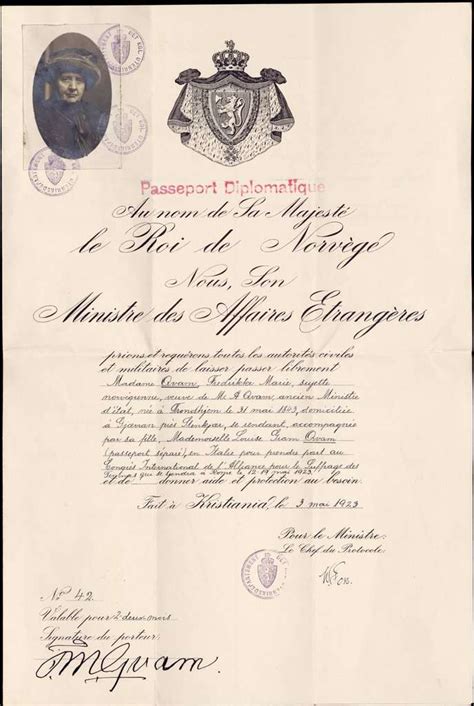 Passeport Diplomatique
Au nom de Sa Majesté
le Roi de Norvège
Nous, Son
Ministre des Affaires Etrangères
prions et requérons toutes les autorités civiles
et militaires de laisser passer librement
Madame Qvam, Fredrikke Marie, sujette
norvégienne, veuve de Mr A Qvam, ancien Ministre
d'état, née à Trondhjem le 31 mai 1843, domiciliée
à Gjævran près Stenkjær, se rendant, accompagnée
par sa fille, Mademoiselle Louise Qvam
(passeport séparé), en Italie pour prendre part au
Congrès International de l'Alliance pour le Suffrage des
Femmes qui se tiendra à Rome le 12-19 mai 1923,
et de donner aide et protection au besoin.
Fait à Kristiania, le 3 mai 1923
Pour le Ministre:
Le Chef du Protocole
No 42
Valable pour 2 deux mois
Signature du porteur
F. M. Qvam.